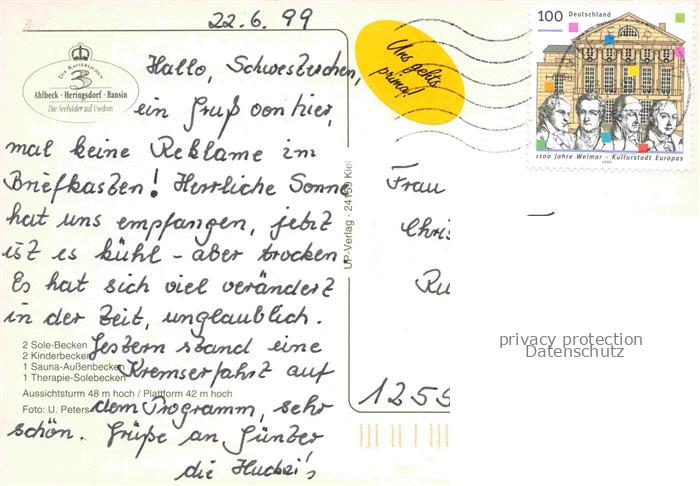 22.6.99
Hallo, Schwesterchen,
ein Gruß von hier,
mal keine Reklame im
Briefkasten! Herrliche Sonne
hat uns empfangen, jetzt
ist es kühl - aber trocken.
Es hat sich viel verändert
in der Zeit, unglaublich.
Gestern stand eine
Kremserfahrt auf
dem Programm, sehr
schön. Grüße an Günter
die
Die Kaiserlichen
3
Ahlbeck · Heringsdorf · Bansin
Die Seebäder auf Usedom
2 Sole-Becken
2 Kinderbecken
1 Sauna-Außenbecken
1 Therapie-Solebecken
Aussichtsturm 48 m hoch / Plattform 42 m hoch
Foto: U. Peters
UP-Verlag · 24159 Kiel
Uns gehts
prima!
100 Deutschland
1100 Jahre Weimar - Kulturstadt Europas
1999
Frau
Chris
Ru
1255
privacy protection
Datenschutz